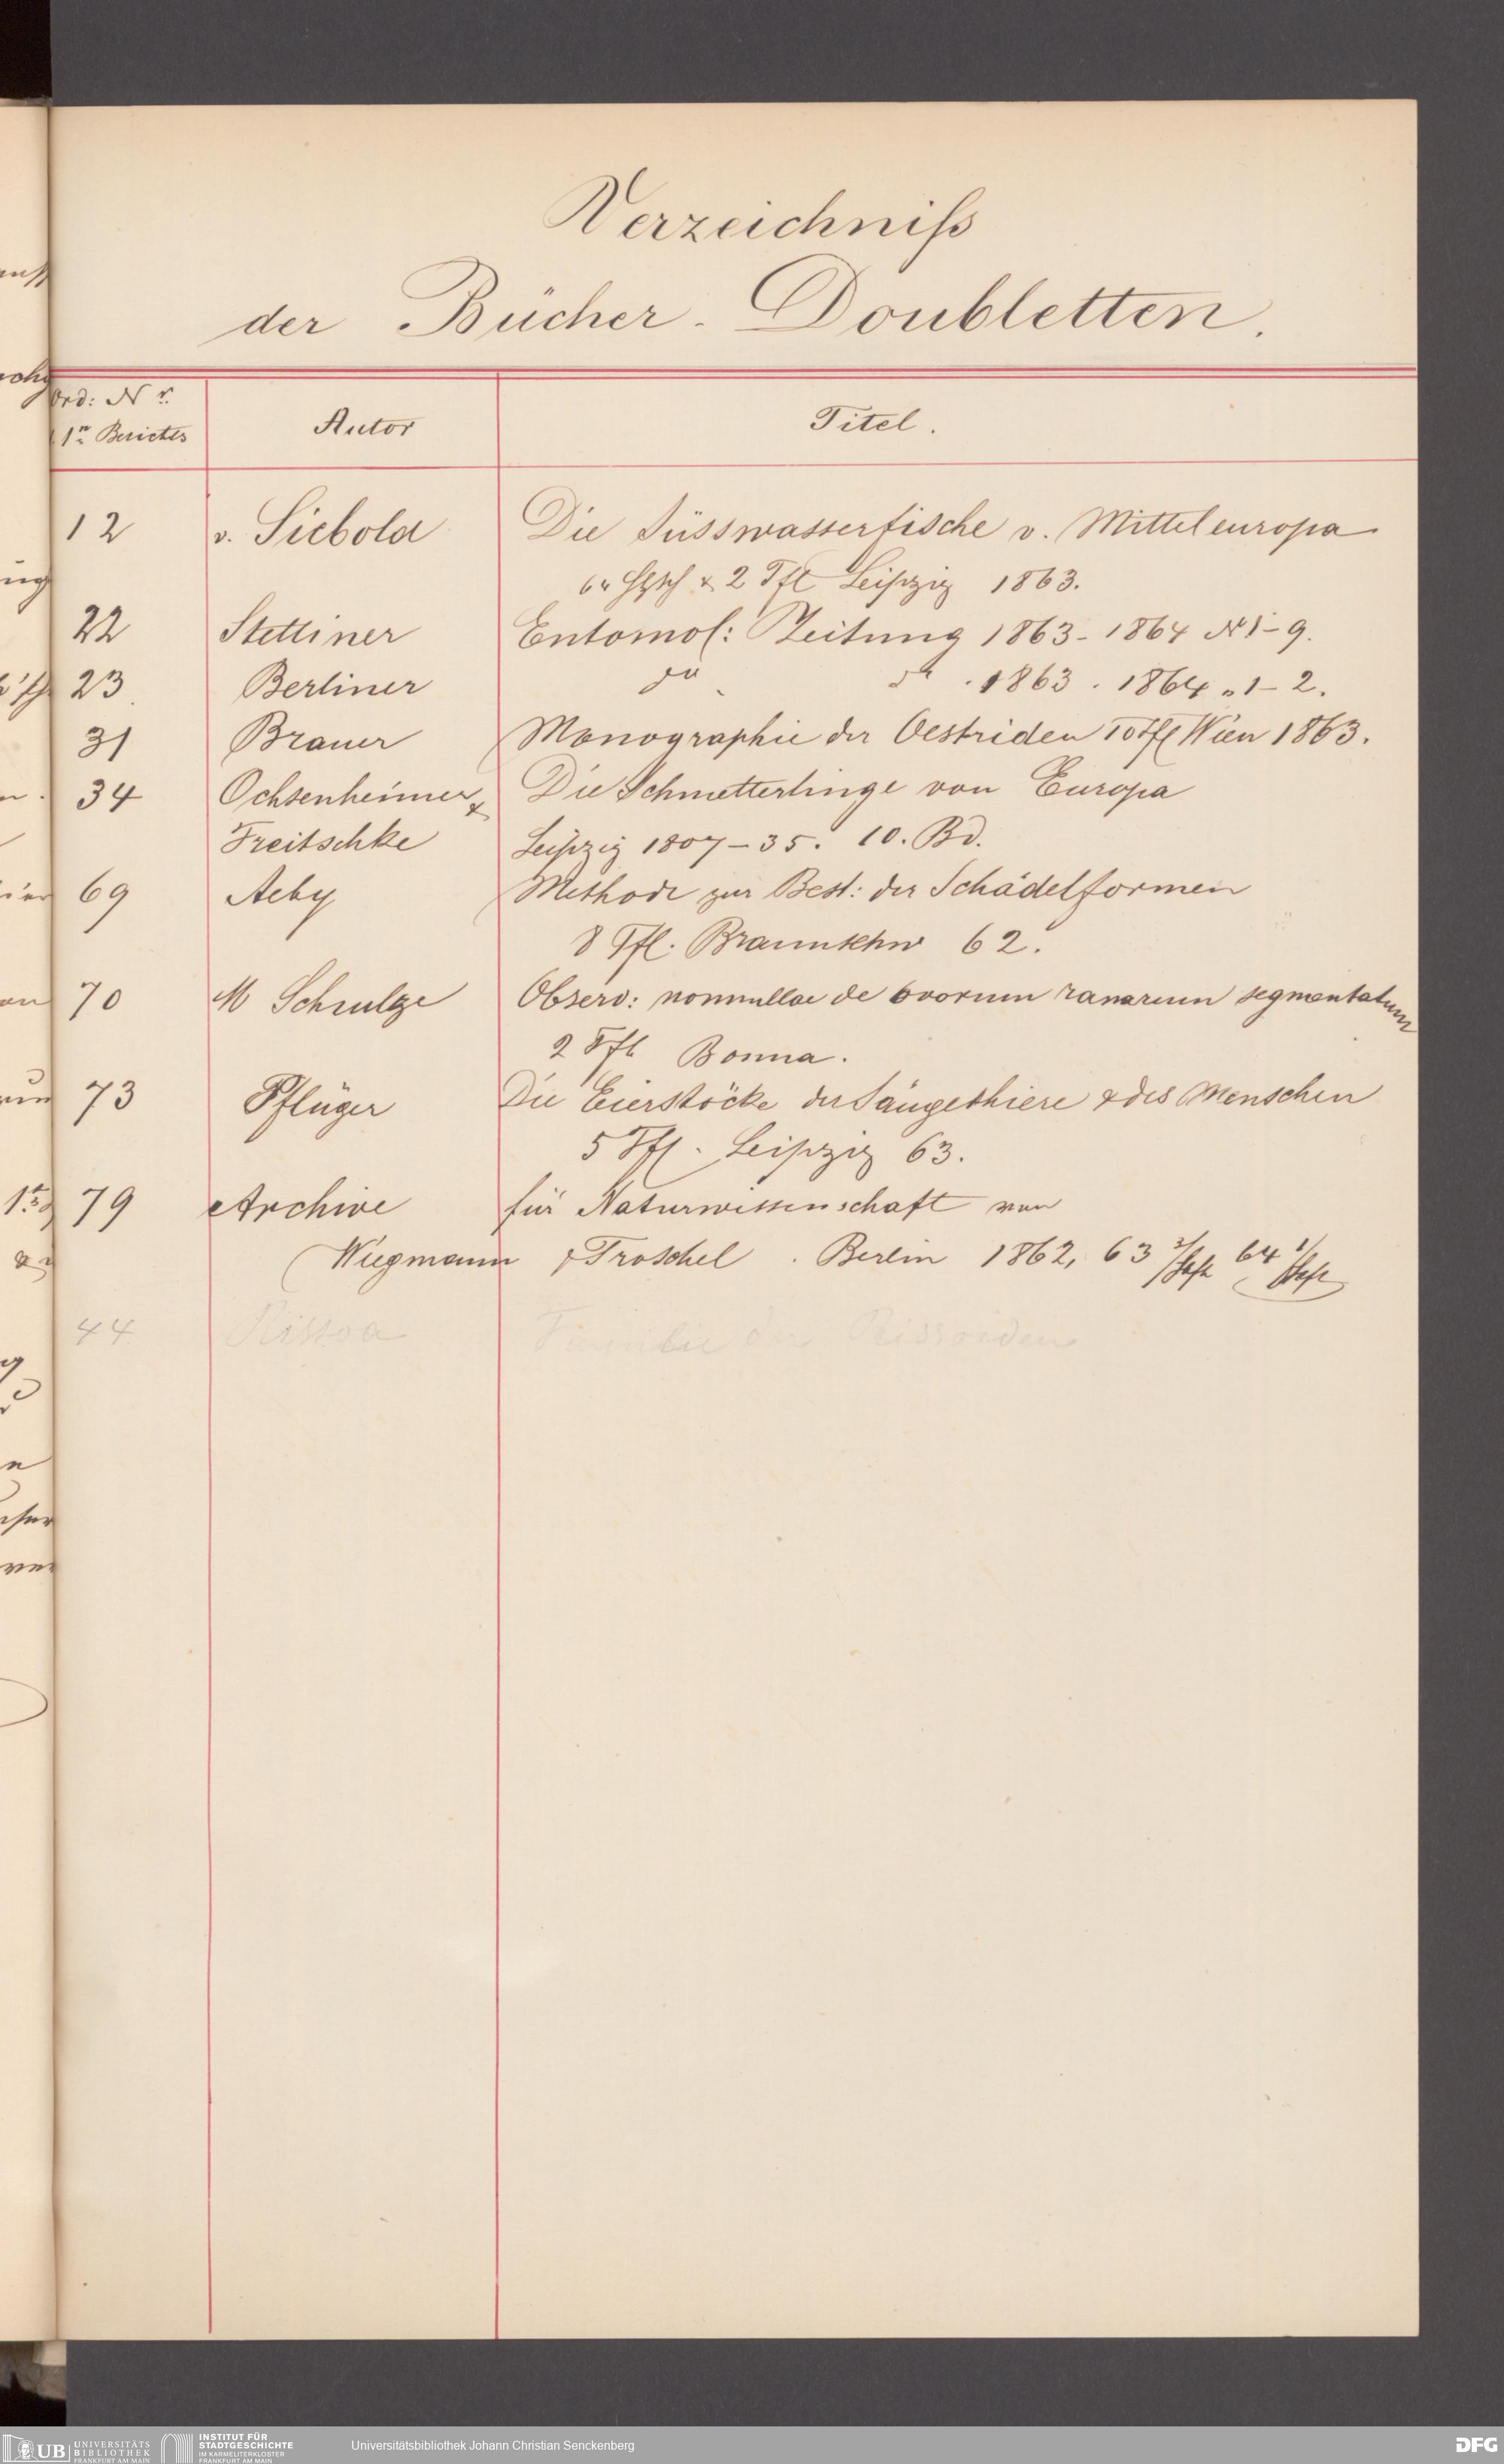 Verzeichniß
der Bücher-Doubletten.
Ord: Nr.
1r Berichts
Autor
Titel.
12 v. Siebold Die Süsswasserfische v. Mitteleuropa
64 Hzsch & 2 Tfl Leipzig 1863.
22 Stettiner Entomol: Zeitung 1863-1864 N 1-9.
23 Berliner do do . 1863. 1864 " 1-2.
31 Brauer Monographie der Oestriden 10 Tfl Wien 1863.
34 Ochsenheimer & Die Schmetterlinge von Europa
Freitschke Leipzig 1807-35. 10. Bd.
69 Aeby Methode zur Best: der Schädelformen
8 Tfl. Braunschw 62.
70 M Schulze Observ: nonnullae de ovorum ranarum segmentatum
2 Tfl Bonna.
73 Pflüger Die Eierstöcke der Säugethiere & des Menschen
5 Tfl. Leipzig 63.
79 Archive für Naturwissenschaft von
Wiegmann & Troschel . Berlin 1862, 63 Heft 64 1/ Heft
44 Rissoa Familie der Rissoiden
UB UNIVERSITÄTS
BIBLIOTHEK
FRANKFURT AM MAIN
INSTITUT FÜR
STADTGESCHICHTE
IM KARMELITERKLOSTER
FRANKFURT AM MAIN
Universitätsbibliothek Johann Christian Senckenberg
DFG